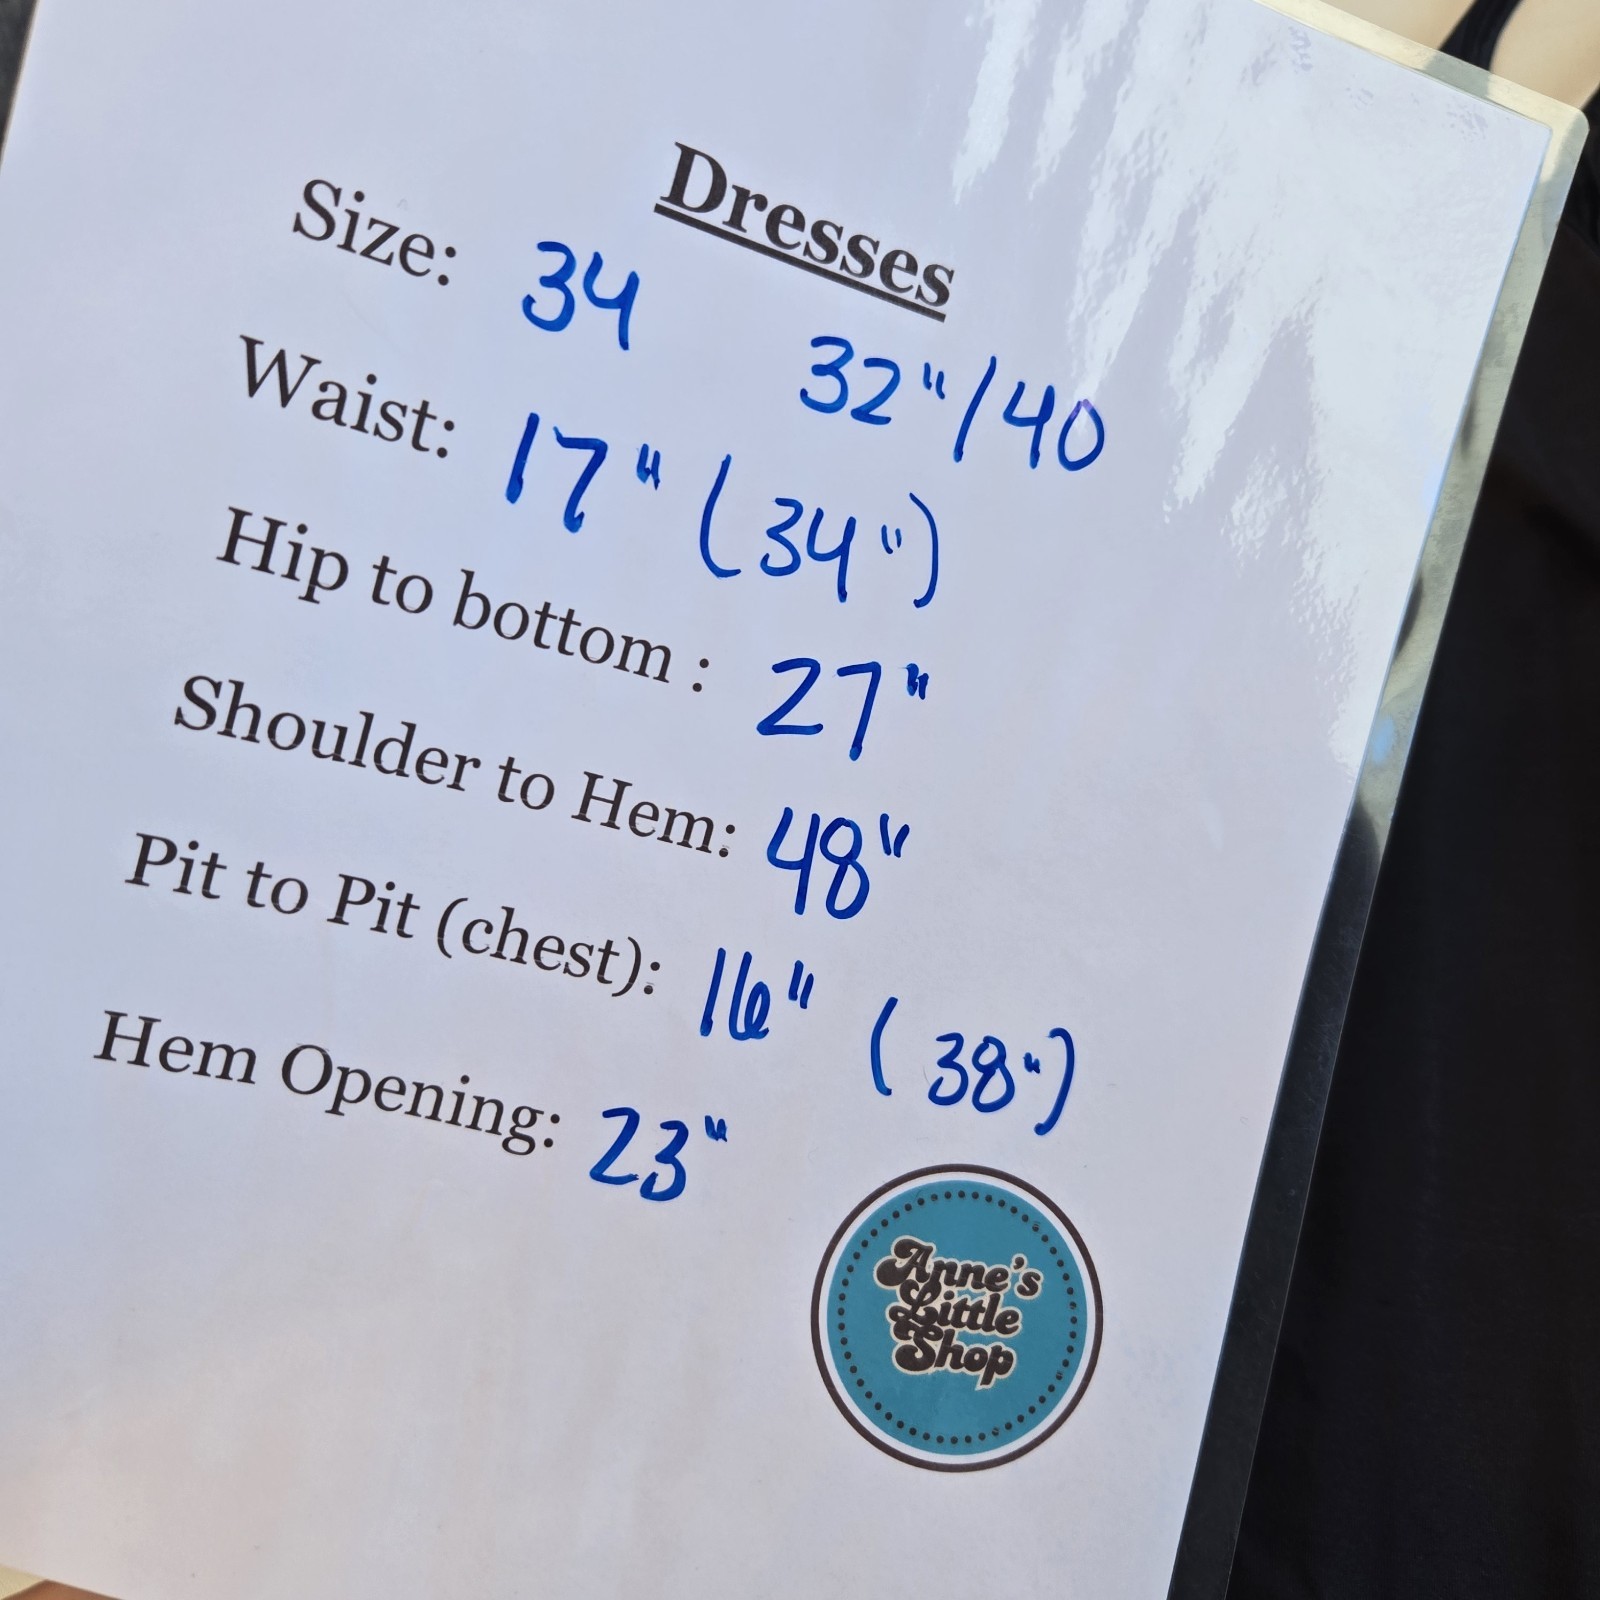 Dresses
Size: 34
32"/40
Waist: 17" (34")
Hip to bottom : 27"
Shoulder to Hem: 48"
Pit to Pit (chest): 16" (38")
Hem Opening: 23"
Anne's
Little
Shop